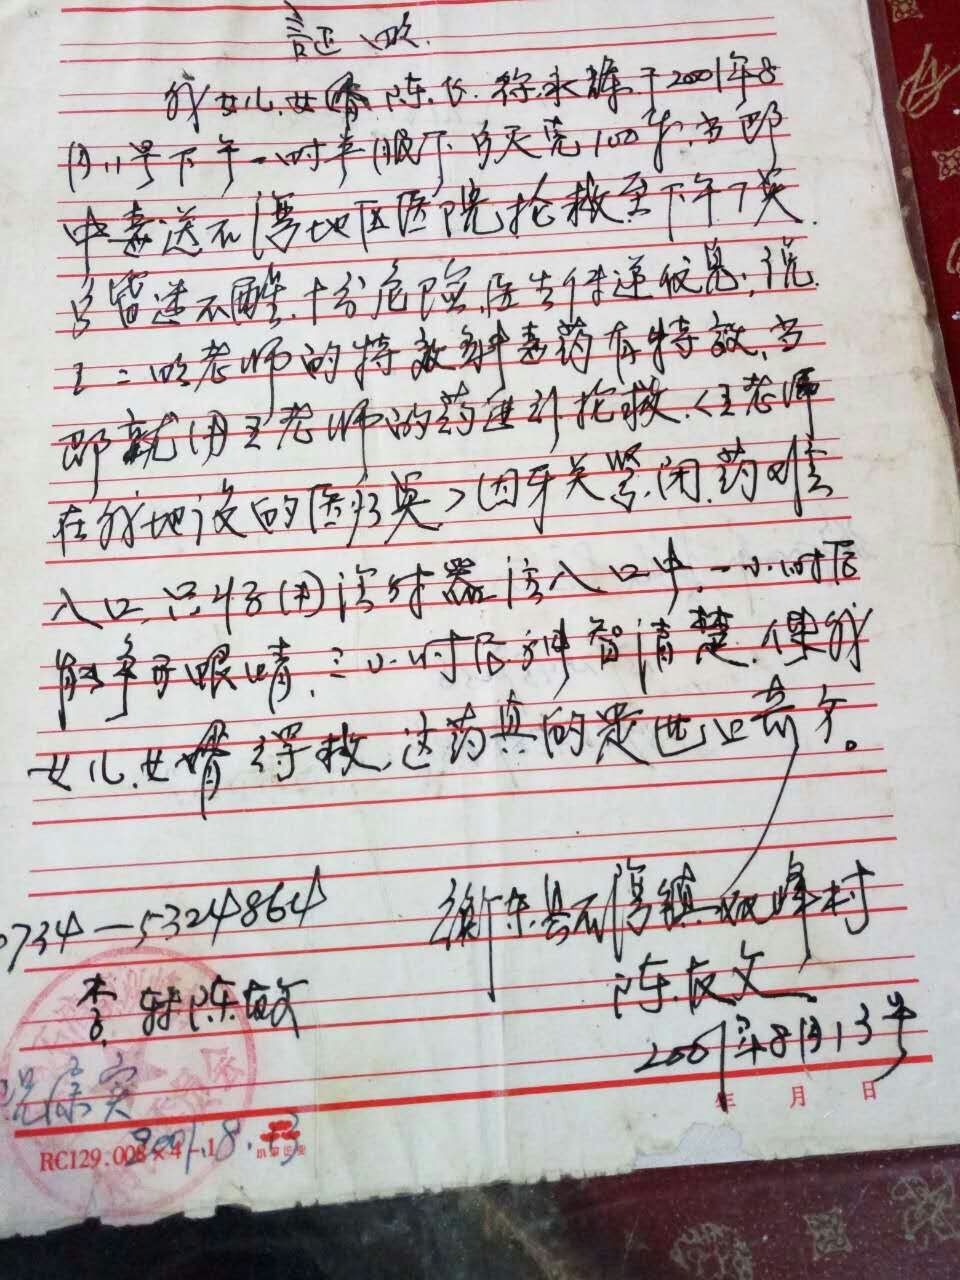 證明
我女儿.女婿 陈. .徐永雄于2001年8
月11号下午一时半服下 灭 100 .当即
中毒送石湾地区医院抢救至下午7 
昏迷不醒.十分危险.医生 递 息.说
王 明老师的特效解毒药有特效.当
即就用王老师的药进行抢救.<王老师
在我地设的医 >因牙关紧闭.药难
入口.只好用注射器注入口中.一小时后
能争开眼睛.三小时后神智清楚.使我
女儿.女婿得救.这药真的是世上奇 。
0734-5324864
衡东县石湾镇双峰村
李 陈友文
陈友文
2001年8月13号
2001.8.13
年 月 日
RC129.008×4-1